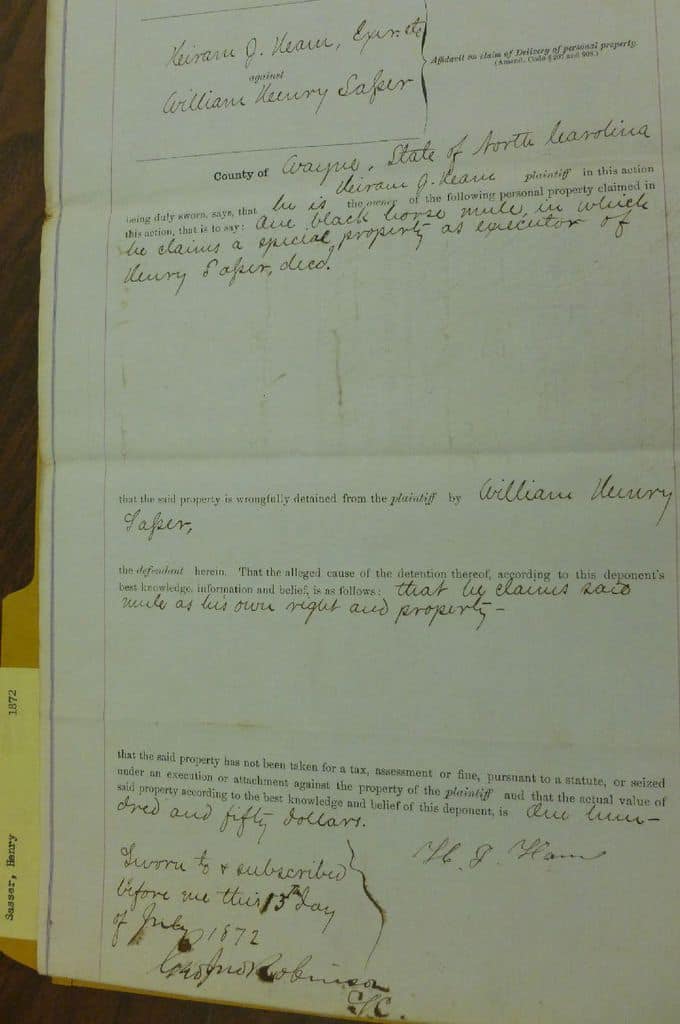 Heiram J. Ham, Exr. etc
against
William Henry Saſser
Affidavit on claim of Delivery of personal property.
(Amend. Code § 207 and 908.)
County of Wayne, State of North Carolina
Heiram J. Ham plaintiff in this action
being duly sworn, says, that he is the owner of the following personal property claimed in
this action, that is to say: One black horse mule, in which
he claims a special property as executor of
Henry Saſser, decd.
that the said property is wrongfully detained from the plaintiff by William Henry
Saſser,
the defendant herein. That the alleged cause of the detention thereof, according to this deponent's
best knowledge, information and belief, is as follows: that he claims said
mule as his own right and property—
that the said property has not been taken for a tax, assessment or fine, pursuant to a statute, or seized
under an execution or attachment against the property of the plaintiff and that the actual value of
said property according to the best knowledge and belief of this deponent, is One hun-
dred and fifty dollars.
H. J. Ham
Sworn to & subscribed
before me this 13th day
of July 1872
Robinson
Sasser, Henry 1872